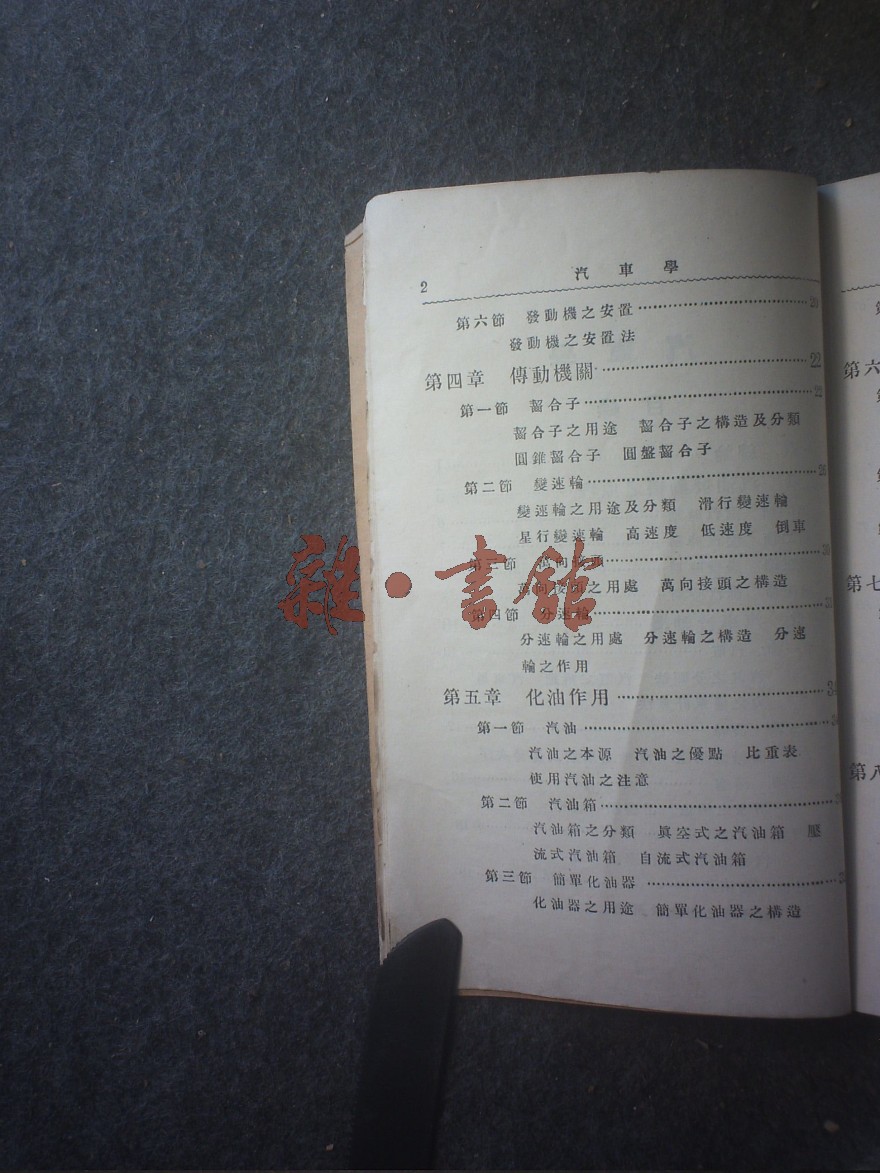 2 汽車學
第六節 發動機之安置 20
發動機之安置法
第四章 傳動機關 22
第一節 齧合子 22
齧合子之用途 齧合子之構造及分類
圓錐齧合子 圓盤齧合子
第二節 變速輪 26
變速輪之用途及分類 滑行變速輪
星行變速輪 高速度 低速度 倒車
第三節 萬向接頭
萬向接頭之用處 萬向接頭之構造
第四節 分速輪 31
分速輪之用處 分速輪之構造 分速
輪之作用
第五章 化油作用 34
第一節 汽油 34
汽油之本源 汽油之優點 比重表
使用汽油之注意
第二節 汽油箱
汽油箱之分類 眞空式之汽油箱 壓
流式汽油箱 自流式汽油箱
第三節 簡單化油器
化油器之用途 簡單化油器之構造
雜·書館
第六
第七
第八